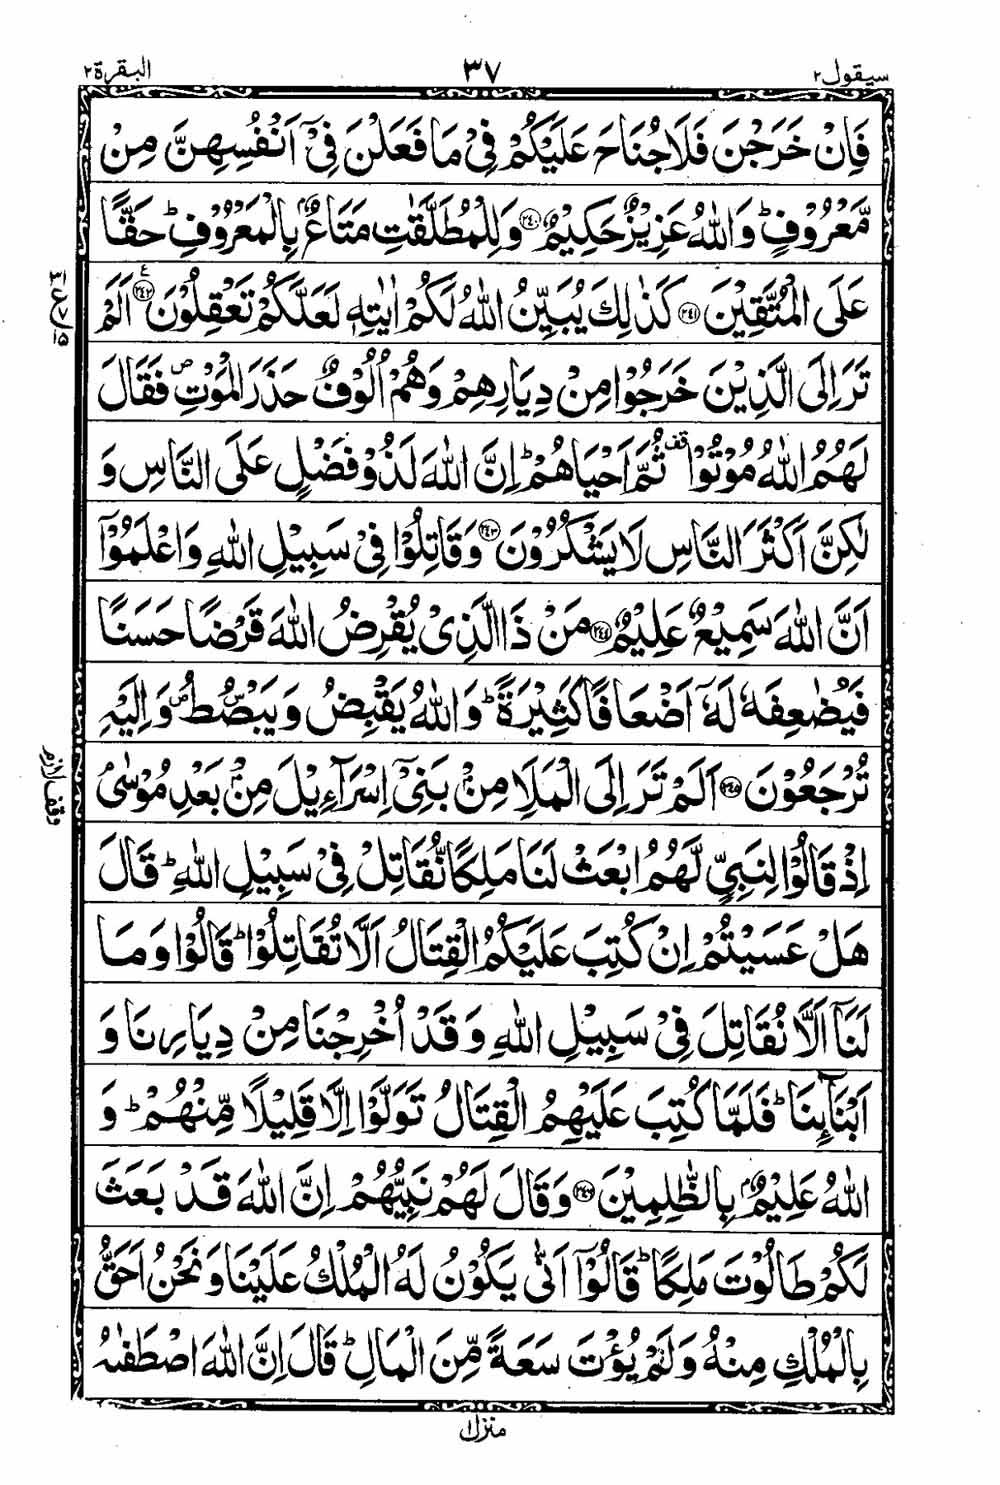 سيقول٢ ٣٧ البقرة٢
فَاِنْ خَرَجْنَ فَلَا جُنَاحَ عَلَيْكُمْ فِيْ مَا فَعَلْنَ فِيْٓ اَنْفُسِهِنَّ مِنْ
مَّعْرُوْفٍ ؕ وَاللّٰهُ عَزِيْزٌ حَكِيْمٌ ﴿٢٤٠﴾ وَلِلْمُطَلَّقٰتِ مَتَاعٌۢ بِالْمَعْرُوْفِ ؕ حَقًّا
عَلَى الْمُتَّقِيْنَ ﴿٢٤١﴾ كَذٰلِكَ يُبَيِّنُ اللّٰهُ لَكُمْ اٰيٰتِهٖ لَعَلَّكُمْ تَعْقِلُوْنَ ﴿٢٤٢﴾ ع اَلَمْ
تَرَ اِلَى الَّذِيْنَ خَرَجُوْا مِنْ دِيَارِهِمْ وَهُمْ اُلُوْفٌ حَذَرَ الْمَوْتِ ص فَقَالَ
لَهُمُ اللّٰهُ مُوْتُوْا قف ثُمَّ اَحْيَاهُمْ ؕ اِنَّ اللّٰهَ لَذُوْ فَضْلٍ عَلَى النَّاسِ وَ
لٰكِنَّ اَكْثَرَ النَّاسِ لَا يَشْكُرُوْنَ ﴿٢٤٣﴾ وَقَاتِلُوْا فِيْ سَبِيْلِ اللّٰهِ وَاعْلَمُوْٓا
اَنَّ اللّٰهَ سَمِيْعٌ عَلِيْمٌ ﴿٢٤٤﴾ مَنْ ذَا الَّذِيْ يُقْرِضُ اللّٰهَ قَرْضًا حَسَنًا
فَيُضٰعِفَهٗ لَهٗٓ اَضْعَافًا كَثِيْرَةً ؕ وَاللّٰهُ يَقْبِضُ وَيَبْصُۜطُ ص وَاِلَيْهِ
تُرْجَعُوْنَ ﴿٢٤٥﴾ اَلَمْ تَرَ اِلَى الْمَلَاِ مِنْۢ بَنِيْٓ اِسْرَآءِيْلَ مِنْۢ بَعْدِ مُوْسٰى ۘ
اِذْ قَالُوْا لِنَبِيٍّ لَّهُمُ ابْعَثْ لَنَا مَلِكًا نُّقَاتِلْ فِيْ سَبِيْلِ اللّٰهِ ؕ قَالَ
هَلْ عَسَيْتُمْ اِنْ كُتِبَ عَلَيْكُمُ الْقِتَالُ اَلَّا تُقَاتِلُوْا ؕ قَالُوْا وَمَا
لَنَآ اَلَّا نُقَاتِلَ فِيْ سَبِيْلِ اللّٰهِ وَقَدْ اُخْرِجْنَا مِنْ دِيَارِنَا وَ
اَبْنَآئِنَا ؕ فَلَمَّا كُتِبَ عَلَيْهِمُ الْقِتَالُ تَوَلَّوْا اِلَّا قَلِيْلًا مِّنْهُمْ ؕ وَ
اللّٰهُ عَلِيْمٌۢ بِالظّٰلِمِيْنَ ﴿٢٤٦﴾ وَقَالَ لَهُمْ نَبِيُّهُمْ اِنَّ اللّٰهَ قَدْ بَعَثَ
لَكُمْ طَالُوْتَ مَلِكًا ؕ قَالُوْٓا اَنّٰى يَكُوْنُ لَهُ الْمُلْكُ عَلَيْنَا وَنَحْنُ اَحَقُّ
بِالْمُلْكِ مِنْهُ وَلَمْ يُؤْتَ سَعَةً مِّنَ الْمَالِ ؕ قَالَ اِنَّ اللّٰهَ اصْطَفٰىهُ
وقف لازم
منزل ١